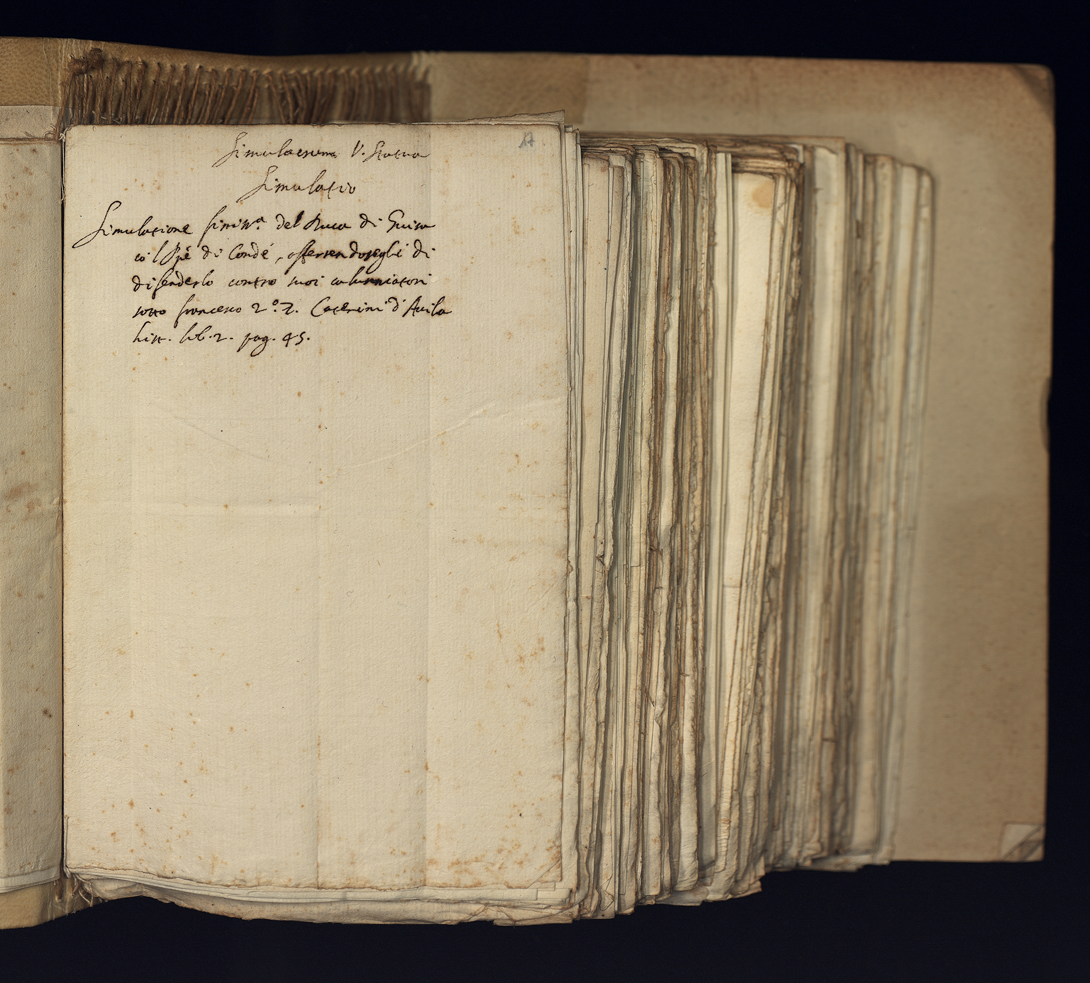 Simulacrum V. Statua
Simulatio
Simulatione finiss.a del Duca di Guisa
co'l Pñe di Condé, offerendosegli di
difenderlo contro suoi calunniatori
sotto francesco 2.º Caterini d'Avila
hist. lib. 2. pag. 45.